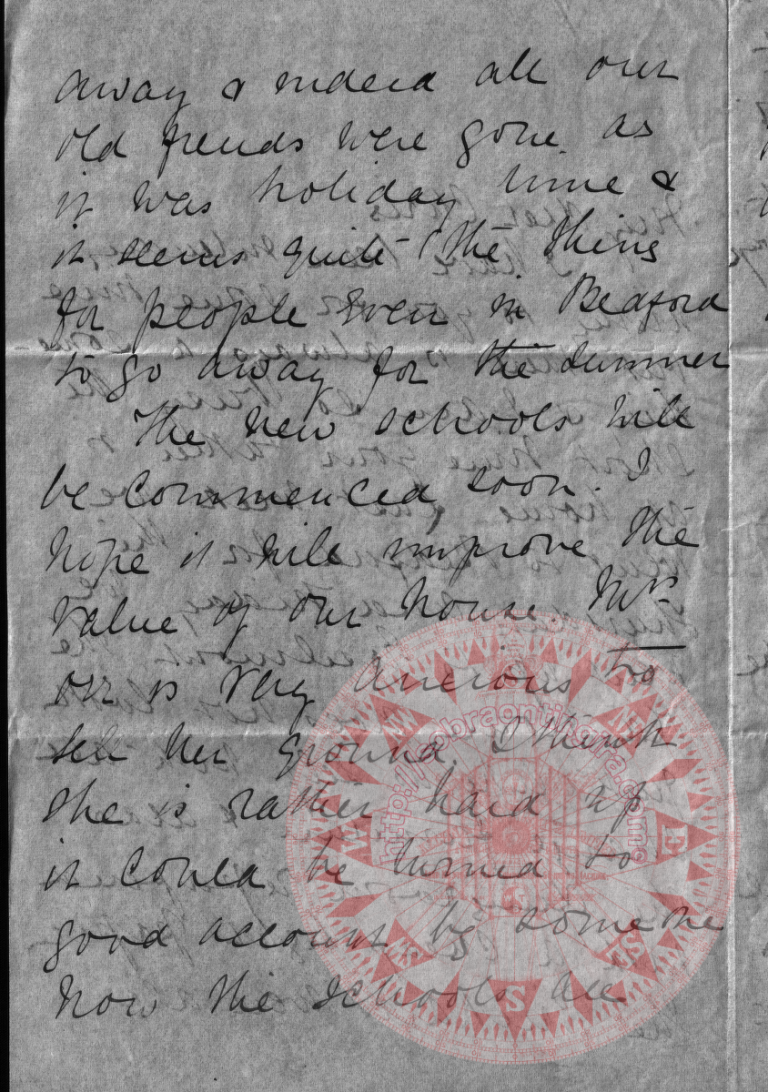 away & indeed all our
old friends were gone. as
it was holiday time &
it seems quite "the" thing
for people even in Bedford
to go away for the summer
The new schools will
be commenced soon. I
hope it will improve the
value of our house. Mrs
Orr is very anxious to
sell her ground. I think
she is rather hard up
it could be turned to
good account by some one
now the schools are